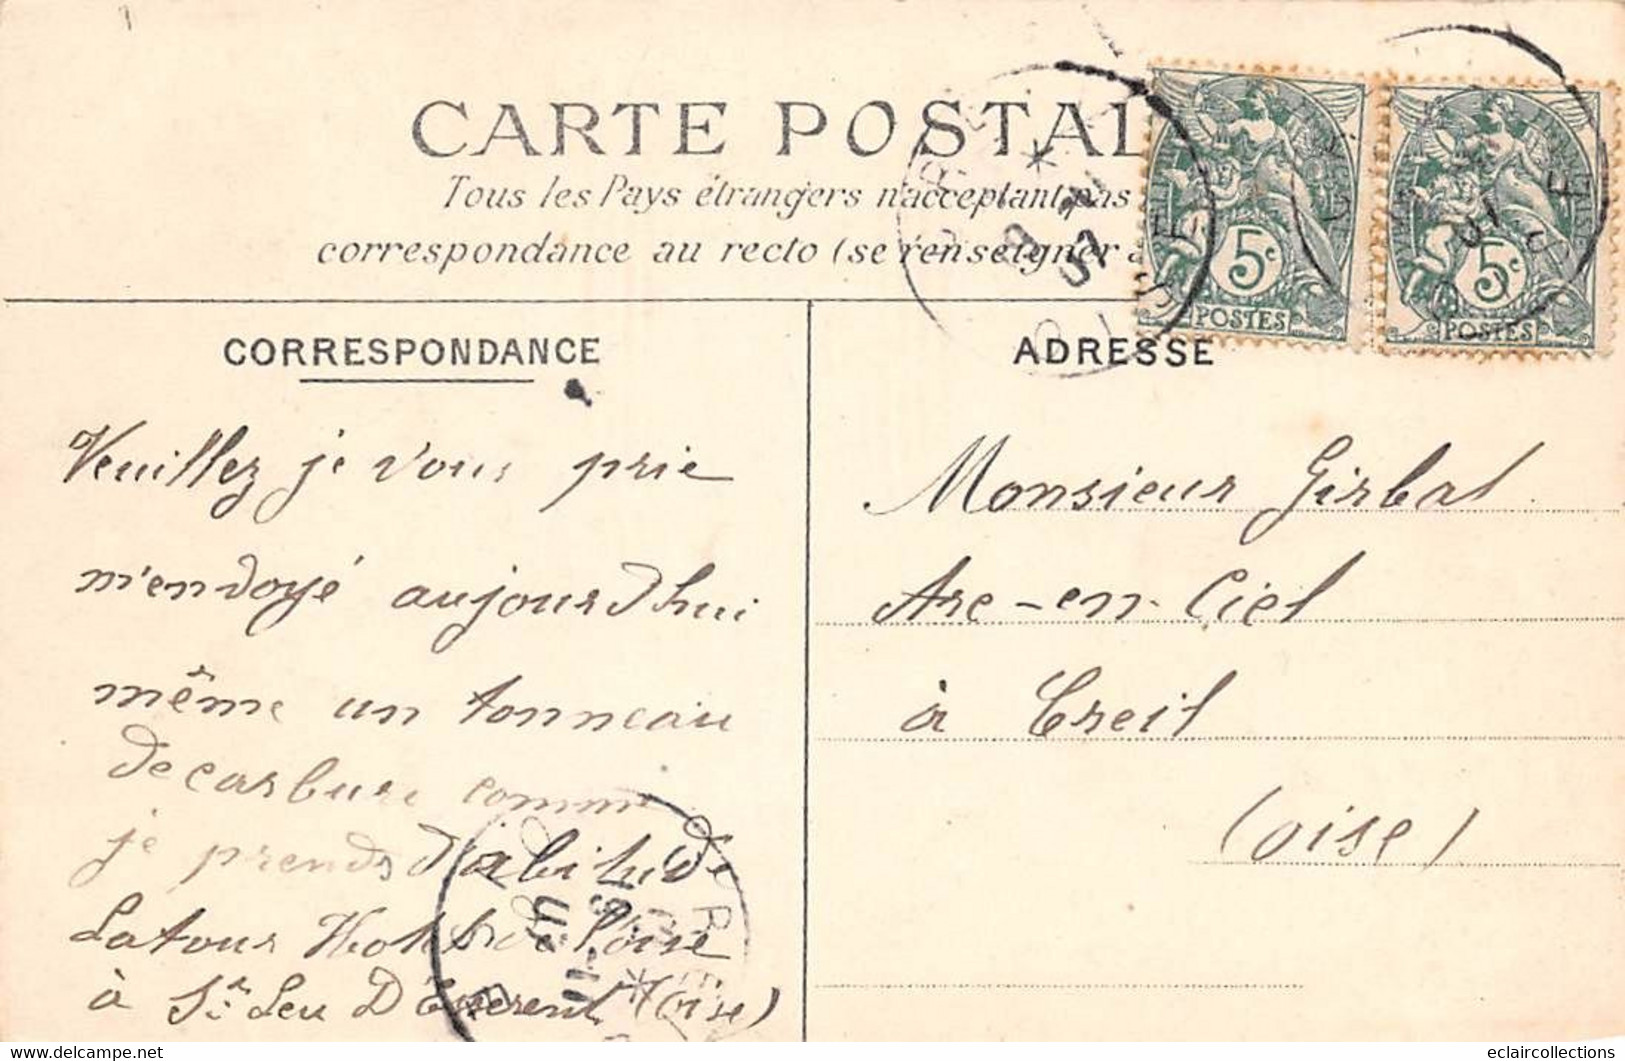 CARTE POSTAL
Tous les Pays étrangers n'acceptant pas
correspondance au recto (se renseigner à
5c
POSTES
5c
POSTES
CORRESPONDANCE
ADRESSE
Veuillez je vous prie
m'envoyé aujourd'hui
même un tonneau
de carbure comme
je prends d'abitude
Latour Hotel de l'oise
à St Leu D'Esserent (oise)
Monsieur Girbal
Arc-en-Ciel
à Creil
(oise)
eclaircollections